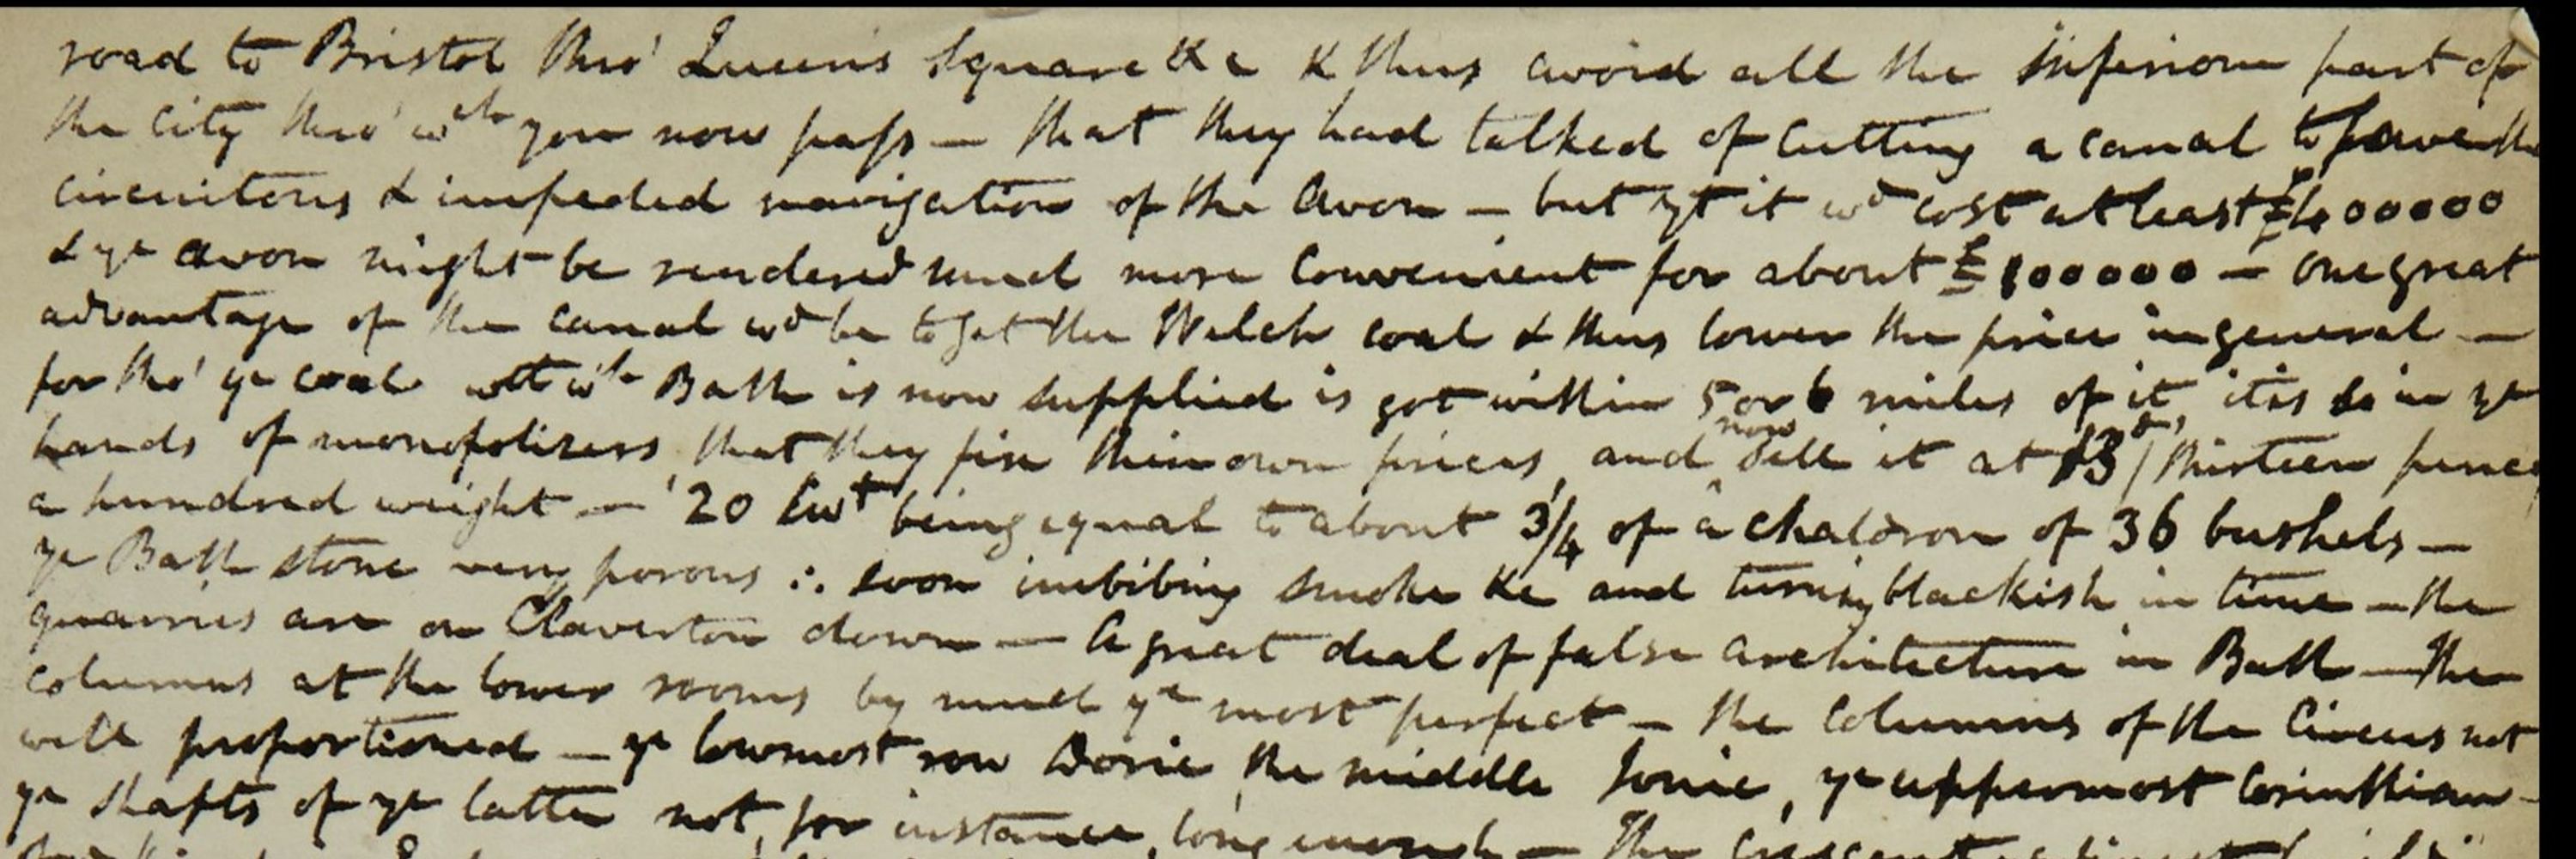 road to Bristol thro' Queen's Square &c & thus avoid all the inferiour part of
the City thro' wch you now pass — that they had talked of cutting a canal to save the
circuitous & impeded navigation of the Avon — but yt it wd cost at least £400000
& ye Avon might be rendered much more convenient for about £100000 — One great
advantage of the canal wd be to get the Welch coal & thus lower the price in general —
for tho' ye coal wch Bath is now supplied is got within 5 or 6 miles of it, it is so in ye
hands of monopolisers that they fix their own prices, and now sell it at 13/ Thirteen pence
a hundred weight — 20 Cwt being equal to about 3/4 of a chaldron of 36 bushels —
ye Bath stone very porous ∴ soon imbibing smoke &c and turning blackish in time — the
quarries are on Claverton down — A great deal of false architecture in Bath — The
columns at the lower rooms by much ye most perfect — the Columns of the Circus not
well proportioned — ye lowmost row Doric, the middle Ionic, ye uppermost Corinthian —
ye shafts of ye latter not, for instance, long enough — The Crescent